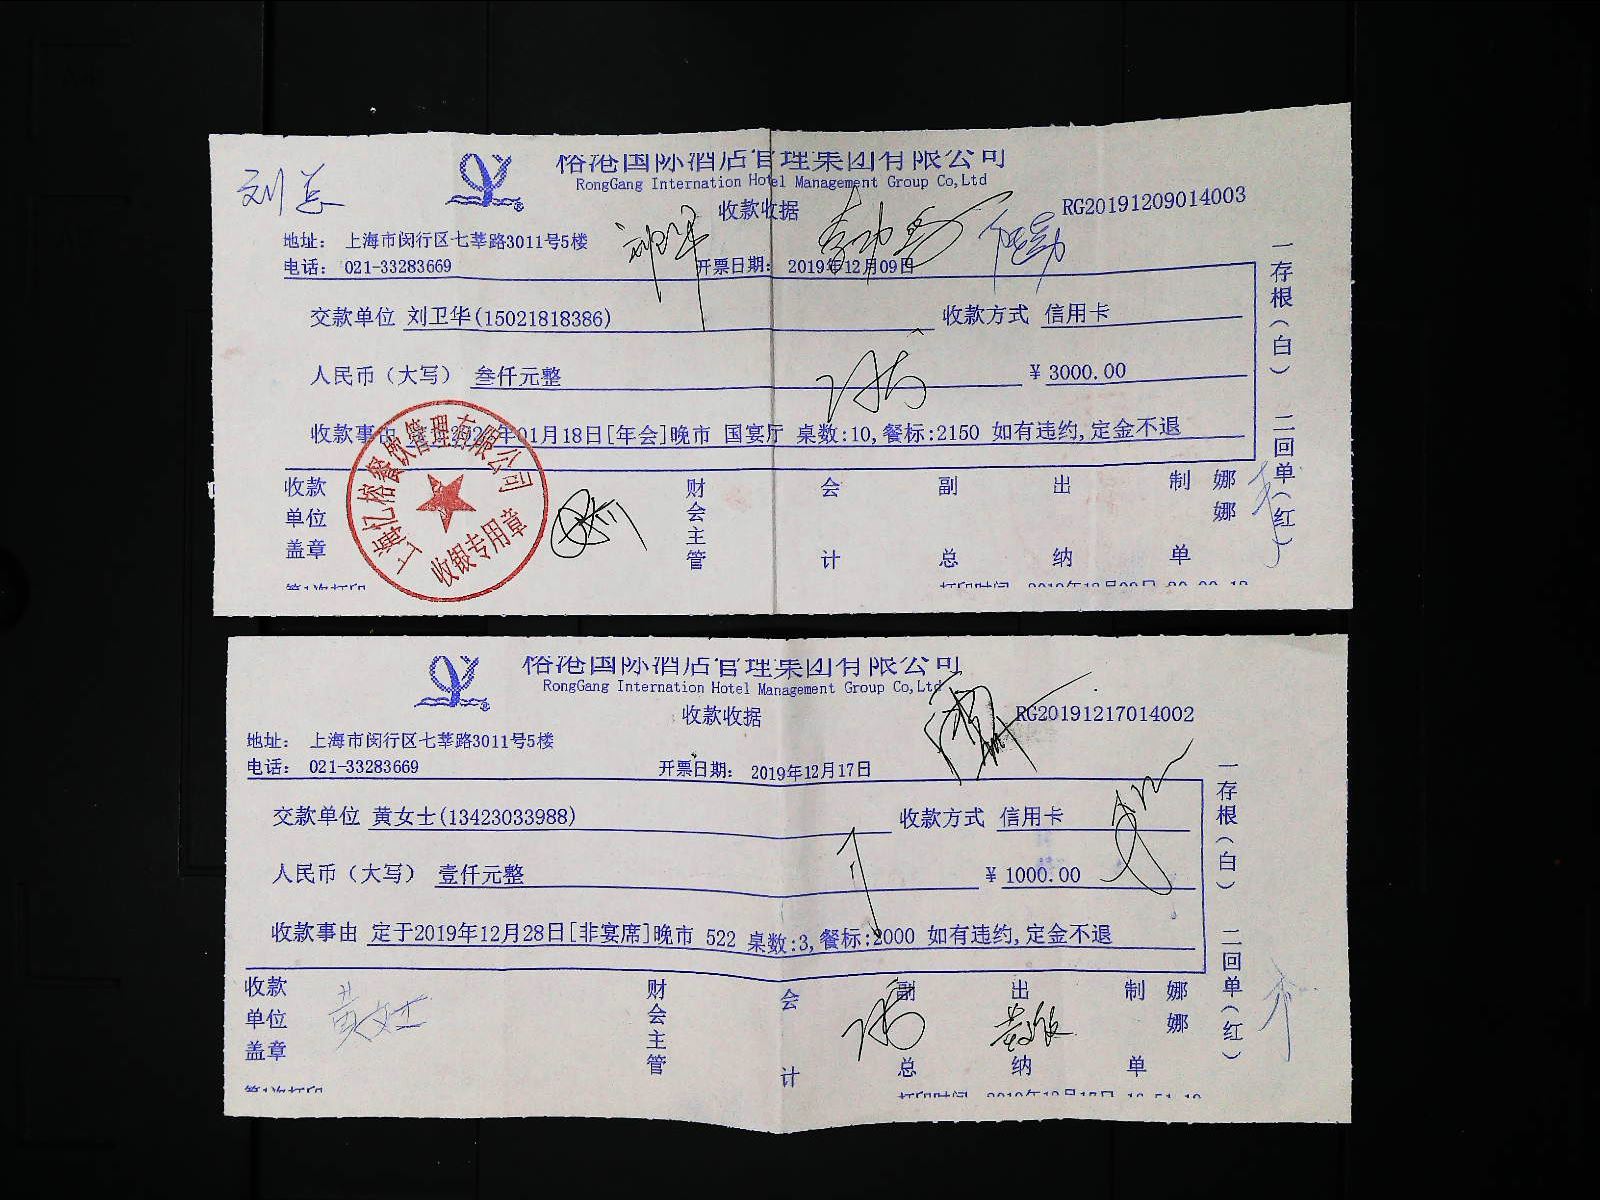 榕港国际酒店管理集团有限公司
RongGang Internation Hotel Management Group Co,Ltd
刘总
收款收据
RG20191209014003
地址: 上海市闵行区七莘路3011号5楼
电话: 021-33283669
开票日期: 2019年12月09日
交款单位 刘卫华(15021818386)
收款方式 信用卡
人民币(大写) 叁仟元整
¥ 3000.00
收款事由 01月18日[年会]晚市 国宴厅 桌数:10,餐标:2150 如有违约,定金不退
一存根(白) 二回单(红)
收款单位盖章
上海忆榕餐饮管理有限公司
收银专用章
财会主管
会计
副总
出纳
制单
娜娜
第1次打印
打印时间
榕港国际酒店管理集团有限公司
RongGang Internation Hotel Management Group Co,Ltd
收款收据
RG20191217014002
地址: 上海市闵行区七莘路3011号5楼
电话: 021-33283669
开票日期: 2019年12月17日
交款单位 黄女士(13423033988)
收款方式 信用卡
人民币(大写) 壹仟元整
¥ 1000.00
收款事由 定于2019年12月28日[非宴席]晚市 522 桌数:3,餐标:2000 如有违约,定金不退
一存根(白) 二回单(红)
收款单位盖章
黄女士
财会主管
会计
副总
出纳
制单
娜娜
第1次打印
打印时间